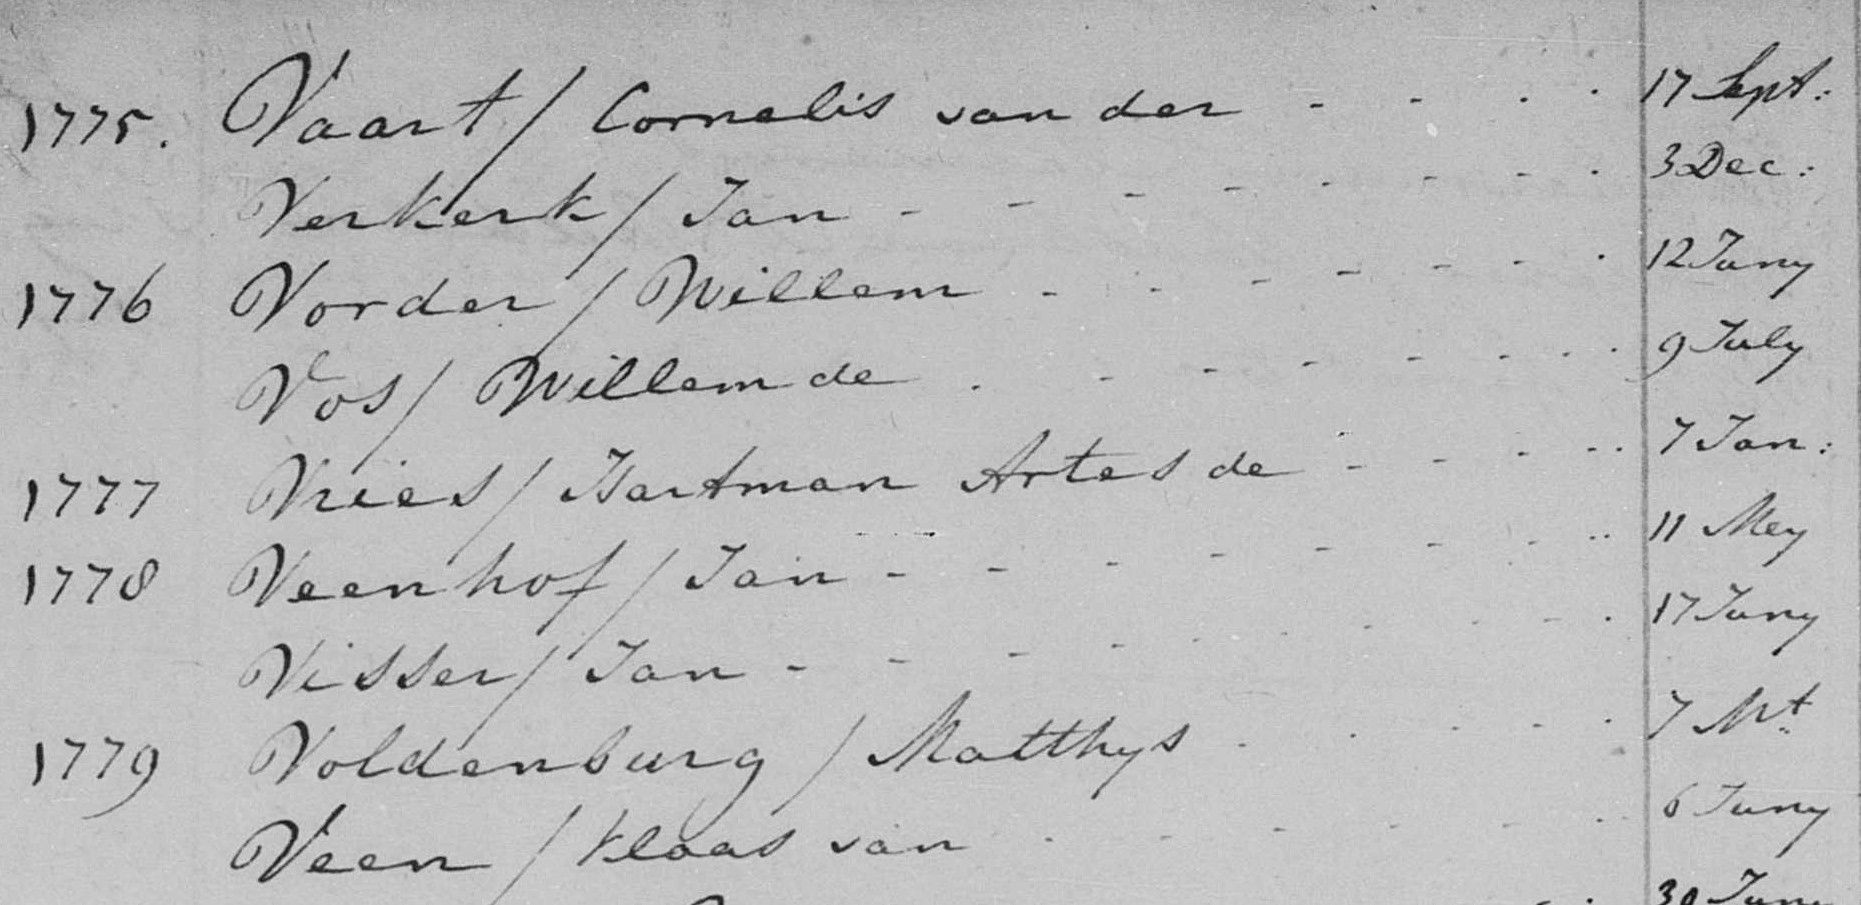 1775. Vaart / Cornelis van der - - - - 17 Sept:
Verkerk / Jan - - - - - - - - 3 Dec:
1776 Vorder / Willem - - - - - - 12 Juny
Vos / Willem de - - - - - - - 9 July
1777 Vries / Hartman Artes de - - - - - 7 Jan:
1778 Veenhof / Jan - - - - - - - - 11 Mey
Visser / Jan - - - - - - - - 17 Juny
1779 Voldenburg / Matthys - - - - - 7 Mt
Veen / Klaas van - - - - - - 6 Juny
30 Juny